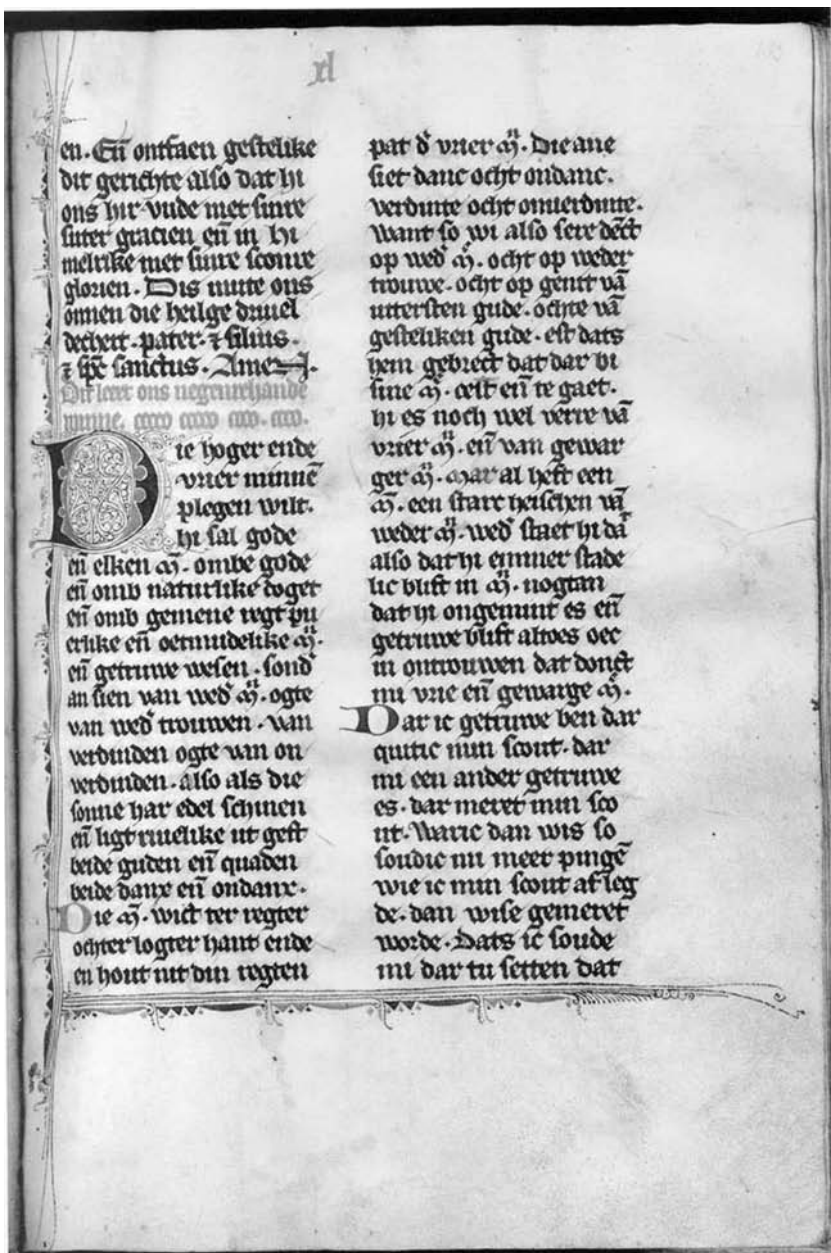 xl
en. En̄ ontfaen gestelike
dit gerichte also dat hi
ons hir vnde met sinre
suter gracien en̄ in hi
melrike met sinre sconre
glorien. Dis mute ons
onnen die heilge driuel
decheit. pater. ⁊ filius.
⁊ sp̄c sanctus. Amen.
Dit leert ons negenrehande
minne.
Die hoger ende
vrier minnē
plegen wilt.
hi sal gode
en̄ elken m̄. ombe gode
en̄ omb naturlike doget
en̄ omb gemene regt pu
erlike en̄ oetmudelike m̄.
en̄ getruwe wesen. sond̄
an sien van wed̄ m̄. ogte
van wed̄ trouwen. van
verdinden ogte van on
verdinden. also als die
sonne har edel schinen
en̄ ligt riuelike ut geft
beide guden en̄ quaden
beide danx en̄ ondanx.
Die m̄. wict ter regter
ochter logter hant ende
en hout nit din regten
pat d̄ vrier m̄. Die ane
siet danc ocht ondanc.
verdinte ocht onuerdinte.
Want so wi also sere dēct
op wed̄ m̄. ocht op weder
trouwe. ocht op genit vā
uttersten gude. ochte vā
gesteliken gude. est dats
hem gebrect dat dar bi
sine m̄. celt en̄ te gaet.
hi es noch wel verre vā
vrier m̄. en̄ van gewar
ger m̄. mar al heft een
m̄. een starc heischen vā
weder m̄. wed̄ staet hi dā
also dat hi emmer stade
lic blift in m̄. nogtan
dat hi ongemint es en̄
getruwe blift altoes oec
in ontrouwen dat donct
mi vrie en̄ gewarge m̄.
Dar ic getruwe ben dar
quitic min scout. dar
mi een ander getruwe
es. dar meret min sco
ut. Waric dan wis so
soudic mi meer pingē
wie ic min scout af leg
de. dan wise gemeret
worde. Dats ic soude
mi dar tu setten dat